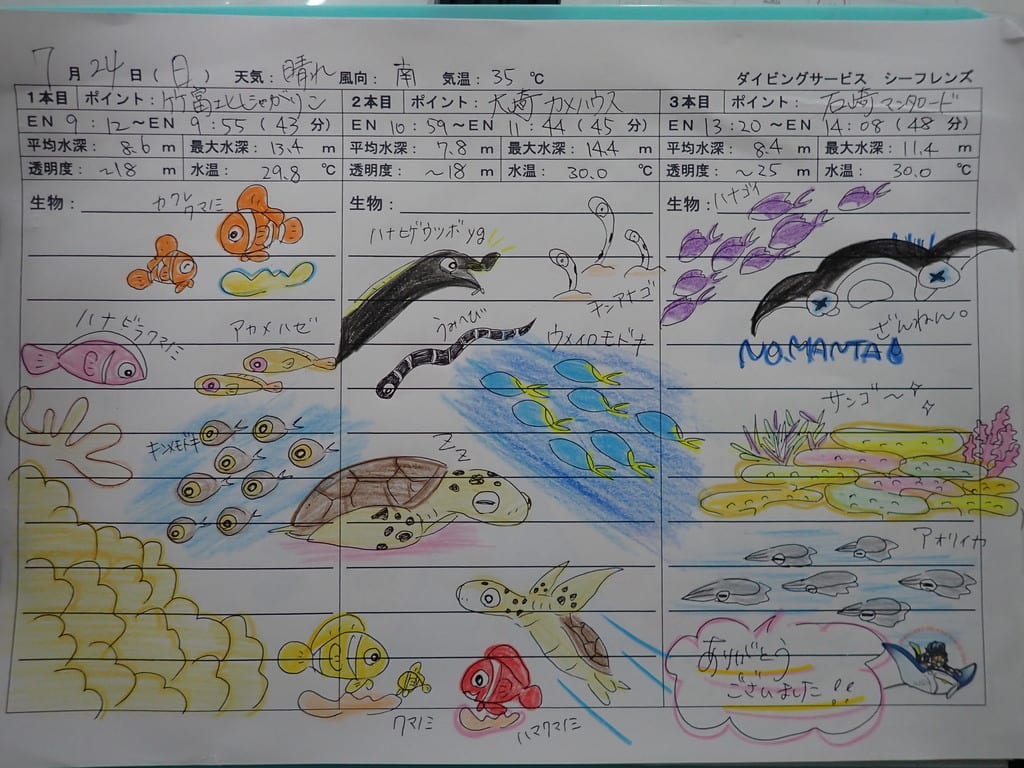 7月24日(日) 天気:晴れ 風向:南 気温:35℃ ダイビングサービス シーフレンズ
1本目 ポイント:竹富エビじゃがりこ
EN 9:12~EN 9:55(43分)
平均水深: 8.6 m 最大水深: 13.4 m
透明度: ~18 m 水温: 29.8 ℃
生物:
カクレ
クマノミ
ハナビラクマノミ
アカメハゼ
キンメモドキ
クマノミ
2本目 ポイント:大崎カメハウス
EN 10:59~EN 11:44(45分)
平均水深: 7.8 m 最大水深: 14.4 m
透明度: ~18 m 水温: 30.0 ℃
生物:
ハナヒゲウツボyg
チンアナゴ
うみへび
ウメイロモドキ
Z Z
ハマクマノミ
3本目 ポイント:石崎マンタロード
EN 13:20~EN 14:08(48分)
平均水深: 8.4 m 最大水深: 11.4 m
透明度: ~25 m 水温: 30.0 ℃
生物:
ハナゴイ
ざんねん。
NO.MANTA
サンゴ~
アオリイカ
ありがとう
ございました!!